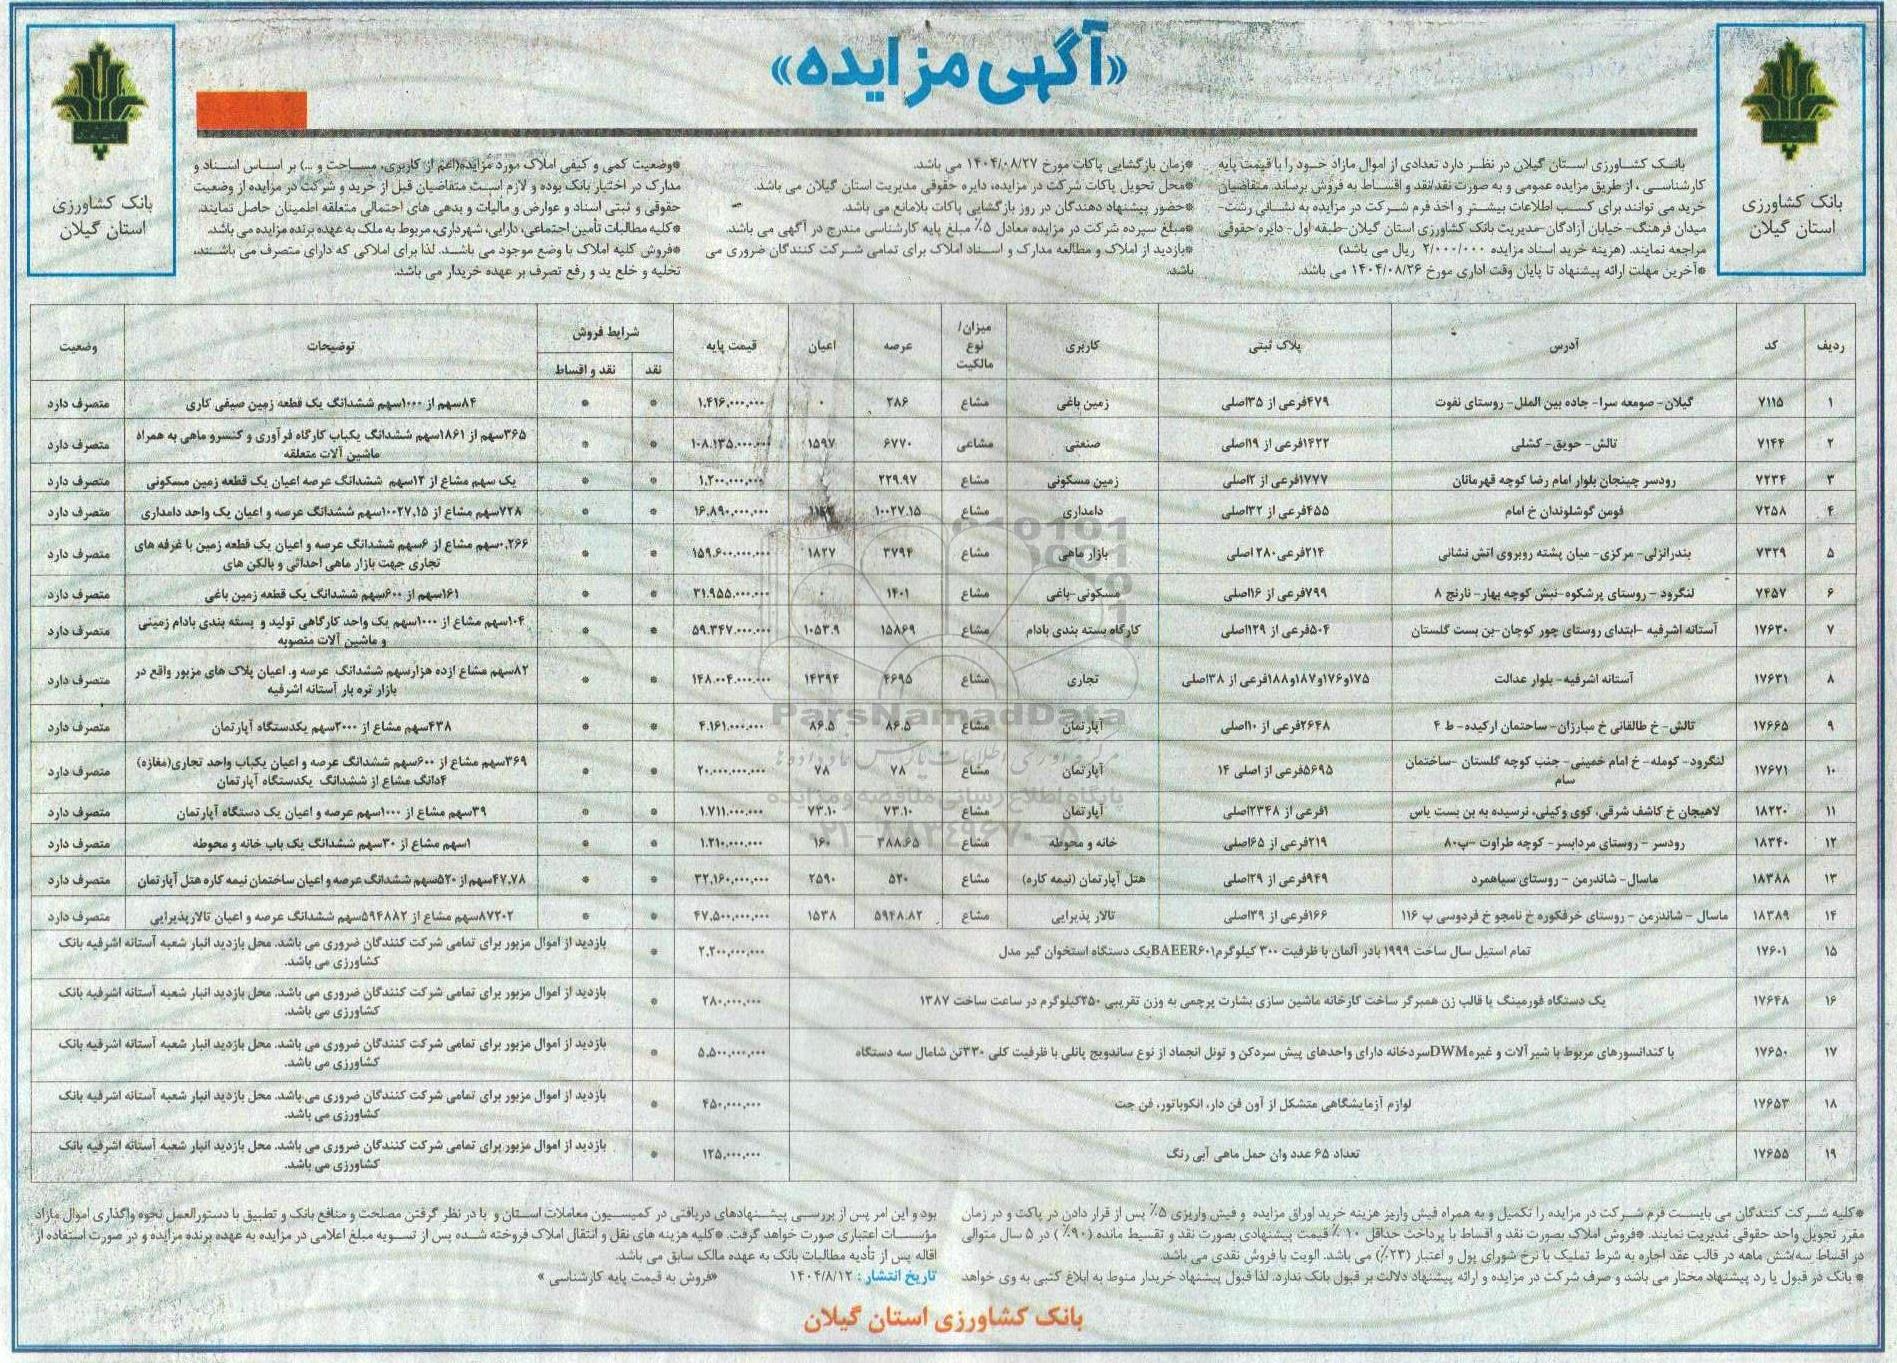 «آگهی مزایده»
بانک کشاورزی
استان گیلان
بانک کشاورزی
استان گیلان
بانک کشاورزی استان گیلان در نظر دارد تعدادی از اموال مازاد خود را با قیمت پایه
کارشناسی ، از طریق مزایده عمومی و به صورت نقد/نقد و اقساط به فروش برساند. متقاضیان
خرید می توانند برای کسب اطلاعات بیشتر و اخذ فرم شرکت در مزایده به نشانی رشت-
میدان فرهنگ- خیابان آزادگان-مدیریت بانک کشاورزی استان گیلان-طبقه اول- دایره حقوقی
مراجعه نمایند. (هزینه خرید اسناد مزایده ۲/۰۰۰/۰۰۰ ریال می باشد)
*آخرین مهلت ارائه پیشنهاد تا پایان وقت اداری مورخ ۱۴۰۴/۰۸/۲۶ می باشد.
*زمان بازگشایی پاکات مورخ ۱۴۰۴/۰۸/۲۷ می باشد.
*محل تحویل پاکات شرکت در مزایده، دایره حقوقی مدیریت استان گیلان می باشد.
*حضور پیشنهاد دهندگان در روز بازگشایی پاکات بلامانع می باشد.
*مبلغ سپرده شرکت در مزایده معادل ۵٪ مبلغ پایه کارشناسی مندرج در آگهی می باشد.
*بازدید از املاک و مطالعه مدارک و اسناد املاک برای تمامی شرکت کنندگان ضروری می
باشد.
*وضعیت کمی و کیفی املاک مورد مزایده(اعم از کاربری، مساحت و ...) بر اساس اسناد و
مدارک در اختیار بانک بوده و لازم است متقاضیان قبل از خرید و شرکت در مزایده از وضعیت
حقوقی و ثبتی اسناد و عوارض و مالیات و بدهی های احتمالی متعلقه اطمینان حاصل نمایند.
*کلیه مطالبات تأمین اجتماعی، دارایی، شهرداری، مربوط به ملک به عهده برنده مزایده می باشد.
*فروش کلیه املاک با وضع موجود می باشد. لذا برای املاکی که دارای متصرف می باشند،
تخلیه و خلع ید و رفع تصرف بر عهده خریدار می باشد.
ردیف کد آدرس پلاک ثبتی کاربری میزان/ نوع مالکیت عرصه اعیان قیمت پایه شرایط فروش نقد نقد و اقساط توضیحات وضعیت
۱ ۷۱۱۵ گیلان- صومعه سرا- جاده بین الملل- روستای نفوت ۴۷۹فرعی از ۳۵اصلی زمین باغی مشاع ۲۸۶ ۰ ۱.۴۱۶.۰۰۰.۰۰۰ * * ۸۴سهم از ۱۰۰۰سهم ششدانگ یک قطعه زمین صیفی کاری متصرف دارد
۲ ۷۱۴۴ تالش- حویق- کشلی ۱۴۲۲فرعی از ۱۹اصلی صنعتی مشاعی ۶۷۷۰ ۱۵۹۷ ۱۰۸.۱۳۵.۰۰۰.۰۰۰ * * ۳۶۵سهم از ۱۸۶۱سهم ششدانگ یکباب کارگاه فرآوری و کنسرو ماهی به همراه
ماشین آلات متعلقه متصرف دارد
۳ ۷۲۳۴ رودسر چینجان بلوار امام رضا کوچه قهرمانان ۱۷۷۷فرعی از ۲اصلی زمین مسکونی مشاع ۲۲۹.۹۷ ۱.۲۰۰.۰۰۰.۰۰۰ * * یک سهم مشاع از ۱۲سهم ششدانگ عرصه اعیان یک قطعه زمین مسکونی متصرف دارد
۴ ۷۲۵۸ فومن گوشلوندان خ امام ۴۵۵فرعی از ۳۲اصلی دامداری مشاع ۱۰۰۲۷.۱۵ ۱۶.۸۹۰.۰۰۰.۰۰۰ * * ۷۲۸سهم مشاع از ۱۰۰۲۷,۱۵سهم ششدانگ عرصه و اعیان یک واحد دامداری متصرف دارد
۵ ۷۳۲۹ بندرانزلی- مرکزی- میان پشته روبروی اتش نشانی ۲۱۴فرعی۲۸۰ اصلی بازار ماهی مشاع ۳۷۹۴ ۱۸۲۷ ۱۵۹.۶۰۰.۰۰۰.۰۰۰ * * ۰,۲۶۶سهم مشاع از ۶سهم ششدانگ عرصه و اعیان یک قطعه زمین با غرفه های
تجاری جهت بازار ماهی احداثی و بالکن های متصرف دارد
۶ ۷۴۵۷ لنگرود - روستای پرشکوه-نبش کوچه بهار- نارنج ۸ ۷۹۹فرعی از ۱۶اصلی مسکونی-باغی مشاع ۱۴۰۱ ۰ ۳۱.۹۵۵.۰۰۰.۰۰۰ * * ۱۶۱سهم از ۶۰۰سهم ششدانگ یک قطعه زمین باغی متصرف دارد
۷ ۱۷۶۳۰ آستانه اشرفیه -ابتدای روستای چور کوچان-بن بست گلستان ۵۰۴فرعی از ۱۲۹اصلی کارگاه بسته بندی بادام مشاع ۱۵۸۶۹ ۱۰۵۳.۹ ۵۹.۳۴۷.۰۰۰.۰۰۰ * * ۱۰۴سهم مشاع از ۱۰۰۰سهم یک واحد کارگاهی تولید و بسته بندی بادام زمینی
و ماشین آلات منصوبه متصرف دارد
۸ ۱۷۶۳۱ آستانه اشرفیه- بلوار عدالت ۱۷۵و۱۷۶و۱۸۷و۱۸۸فرعی از ۳۸اصلی تجاری مشاع ۴۶۹۵ ۱۴۳۹۴ ۱۴۸.۰۰۴.۰۰۰.۰۰۰ * * ۸۲سهم مشاع ازده هزارسهم ششدانگ عرصه و. اعیان پلاک های مزبور واقع در
بازار تره بار آستانه اشرفیه متصرف دارد
۹ ۱۷۶۶۵ تالش- خ طالقانی خ مبارزان- ساختمان ارکیده- ط ۴ ۲۶۴۸فرعی از ۱۰اصلی آپارتمان مشاع ۸۶.۵ ۸۶.۵ ۴.۱۶۱.۰۰۰.۰۰۰ * * ۴۳۸سهم مشاع از ۲۰۰۰سهم یکدستگاه آپارتمان متصرف دارد
۱۰ ۱۷۶۷۱ لنگرود- کومله- خ امام خمینی- جنب کوچه گلستان -ساختمان
سام ۵۶۹۵فرعی از اصلی ۱۴ آپارتمان مشاع ۷۸ ۷۸ ۲۰.۰۰۰.۰۰۰.۰۰۰ * * ۳۶۹سهم مشاع از ۶۰۰سهم ششدانگ عرصه و اعیان یکباب واحد تجاری(مغازه)
۴دانگ مشاع از ششدانگ یکدستگاه آپارتمان متصرف دارد
۱۱ ۱۸۲۲۰ لاهیجان خ کاشف شرقی، کوی وکیلی، نرسیده به بن بست یاس ۱فرعی از ۲۳۴۸اصلی آپارتمان مشاع ۷۳.۱۰ ۷۳.۱۰ ۱.۷۱۱.۰۰۰.۰۰۰ * * ۳۹سهم مشاع از ۱۰۰۰سهم عرصه و اعیان یک دستگاه آپارتمان متصرف دارد
۱۲ ۱۸۳۴۰ رودسر - روستای مردابسر- کوچه طراوت -پ۸۰ ۲۱۹فرعی از ۶۵اصلی خانه و محوطه مشاع ۳۸۸.۶۵ ۱۶۰ ۱.۲۱۰.۰۰۰.۰۰۰ * * ۱سهم مشاع از ۳۰سهم ششدانگ یک باب خانه و محوطه متصرف دارد
۱۳ ۱۸۳۸۸ ماسال- شاندرمن - روستای سیاهمرد ۹۴۹فرعی از ۲۹اصلی هتل آپارتمان (نیمه کاره) مشاع ۵۲۰ ۲۵۹۰ ۳۲,۱۶۰,۰۰۰,۰۰۰ * * ۴۷,۷۸سهم از ۵۲۰سهم ششدانگ عرصه و اعیان ساختمان نیمه کاره هتل آپارتمان متصرف دارد
۱۴ ۱۸۳۸۹ ماسال - شاندرمن - روستای خرفکوره خ نامجو خ فردوسی پ ۱۱۶ ۱۶۶فرعی از ۳۹اصلی تالار پذیرایی مشاع ۵۹۴۸.۸۲ ۱۵۳۸ ۴۷,۵۰۰,۰۰۰,۰۰۰ * * ۸۷۲۰۲سهم مشاع از ۵۹۴۸۸۲سهم ششدانگ عرصه و اعیان تالارپذیرایی متصرف دارد
۱۵ ۱۷۶۰۱ تمام استیل سال ساخت ۱۹۹۹ بادر آلمان با ظرفیت ۳۰۰ کیلوگرمBAEER۶۰۱یک دستگاه استخوان گیر مدل ۲.۲۰۰,۰۰۰,۰۰۰ * بازدید از اموال مزبور برای تمامی شرکت کنندگان ضروری می باشد. محل بازدید انبار شعبه آستانه اشرفیه بانک
کشاورزی می باشد.
۱۶ ۱۷۶۴۸ یک دستگاه فورمینگ یا قالب زن همبرگر ساخت کارخانه ماشین سازی بشارت پرچمی به وزن تقریبی ۲۵۰کیلوگرم در ساعت ساخت ۱۳۸۷ ۲۸۰,۰۰۰,۰۰۰ * بازدید از اموال مزبور برای تمامی شرکت کنندگان ضروری می باشد. محل بازدید انبار شعبه آستانه اشرفیه بانک
کشاورزی می باشد.
۱۷ ۱۷۶۵۰ با کندانسورهای مربوط با شیرآلات و غیرهDWMسردخانه دارای واحدهای پیش سردکن و تونل انجماد از نوع ساندویچ پانلی با ظرفیت کلی ۳۳۰تن شامال سه دستگاه ۵,۵۰۰,۰۰۰,۰۰۰ * بازدید از اموال مزبور برای تمامی شرکت کنندگان ضروری می باشد. محل بازدید انبار شعبه آستانه اشرفیه بانک
کشاورزی می باشد.
۱۸ ۱۷۶۵۳ لوازم آزمایشگاهی متشکل از آون فن دار، انکوباتور، فن جت ۴۵۰,۰۰۰,۰۰۰ * بازدید از اموال مزبور برای تمامی شرکت کنندگان ضروری می باشد. محل بازدید انبار شعبه آستانه اشرفیه بانک
کشاورزی می باشد.
۱۹ ۱۷۶۵۵ تعداد ۶۵ عدد وان حمل ماهی آبی رنگ ۱۲۵,۰۰۰,۰۰۰ * بازدید از اموال مزبور برای تمامی شرکت کنندگان ضروری می باشد. محل بازدید انبار شعبه آستانه اشرفیه بانک
کشاورزی می باشد.
ParsNamadData
پایگاه اطلاع رسانی مناقصه و مزایده
۰۲۱-۸۸۳۴۹۶۷۰-۵
*کلیه شرکت کنندگان می بایست فرم شرکت در مزایده را تکمیل و به همراه فیش واریز هزینه خرید اوراق مزایده و فیش واریزی ۵٪ پس از قرار دادن در پاکت و در زمان
مقرر تحویل واحد حقوقی مدیریت نمایند. *فروش املاک بصورت نقد و اقساط با پرداخت حداقل ۱۰ ٪ قیمت پیشنهادی بصورت نقد و تقسیط مانده (۹۰٪ ) در ۵ سال متوالی
در اقساط سه/شش ماهه در قالب عقد اجاره به شرط تملیک با نرخ شورای پول و اعتبار (۲۳٪) می باشد. الویت با فروش نقدی می باشد.
* بانک در قبول یا رد پیشنهاد مختار می باشد و صرف شرکت در مزایده و ارائه پیشنهاد دلالت بر قبول بانک ندارد. لذا قبول پیشنهاد خریدار منوط به ابلاغ کتبی به وی خواهد
بود و این امر پس از بررسی پیشنهادهای دریافتی در کمیسیون معاملات استان و با در نظر گرفتن مصلحت و منافع بانک و تطبیق با دستورالعمل نحوه واگذاری اموال مازاد
مؤسسات اعتباری صورت خواهد گرفت. *کلیه هزینه های نقل و انتقال املاک فروخته شده پس از تسویه مبلغ اعلامی در مزایده به عهده برنده مزایده و در صورت استفاده از
اقاله پس از تأدیه مطالبات بانک به عهده مالک سابق می باشد.
تاریخ انتشار : ۱۴۰۴/۸/۱۲ «فروش به قیمت پایه کارشناسی »
بانک کشاورزی استان گیلان